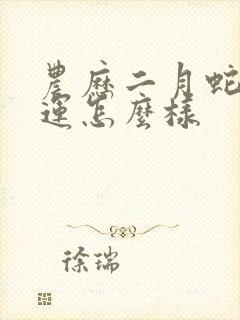 農歷二月蛇
運怎麼樣
徐瑞